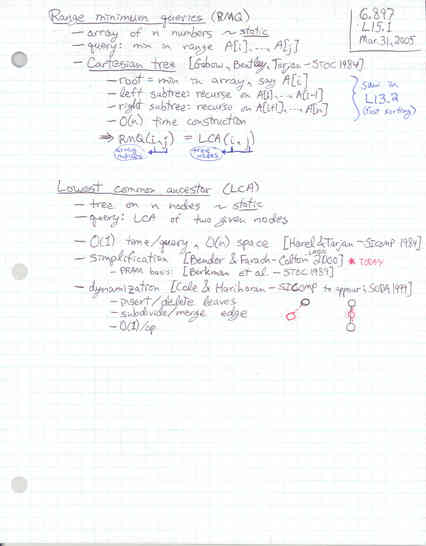 6.897
L15.1
Mar. 31, 2005
Range minimum queries (RMQ)
- array of n numbers ~ static
- query: min in range A[i], ..., A[j]
- Cartesian tree [Gabow, Bentley, Tarjan - STOC 1984]
- root = min in array, say A[i]
- left subtree: recurse on A[1], ..., A[i-1]
- right subtree: recurse on A[i+1], ..., A[n]
- O(n) time construction
saw in
L13.2
(fast sorting)
⇒ RMQ(i,j) = LCA(i,j)
array indices
tree nodes
Lowest common ancestor (LCA)
- tree on n nodes ~ static
- query: LCA of two given nodes
- O(1) time/query, O(n) space [Harel & Tarjan - SICOMP 1984]
- simplification [Bender & Farach-Colton - LATIN 2000] * TODAY
- PRAM basis: [Berkman et al. - STOC 1989]
- dynamization [Cole & Hariharan - SICOMP to appear; SODA 1999]
- insert/delete leaves
- subdivide/merge edge
- O(1)/op